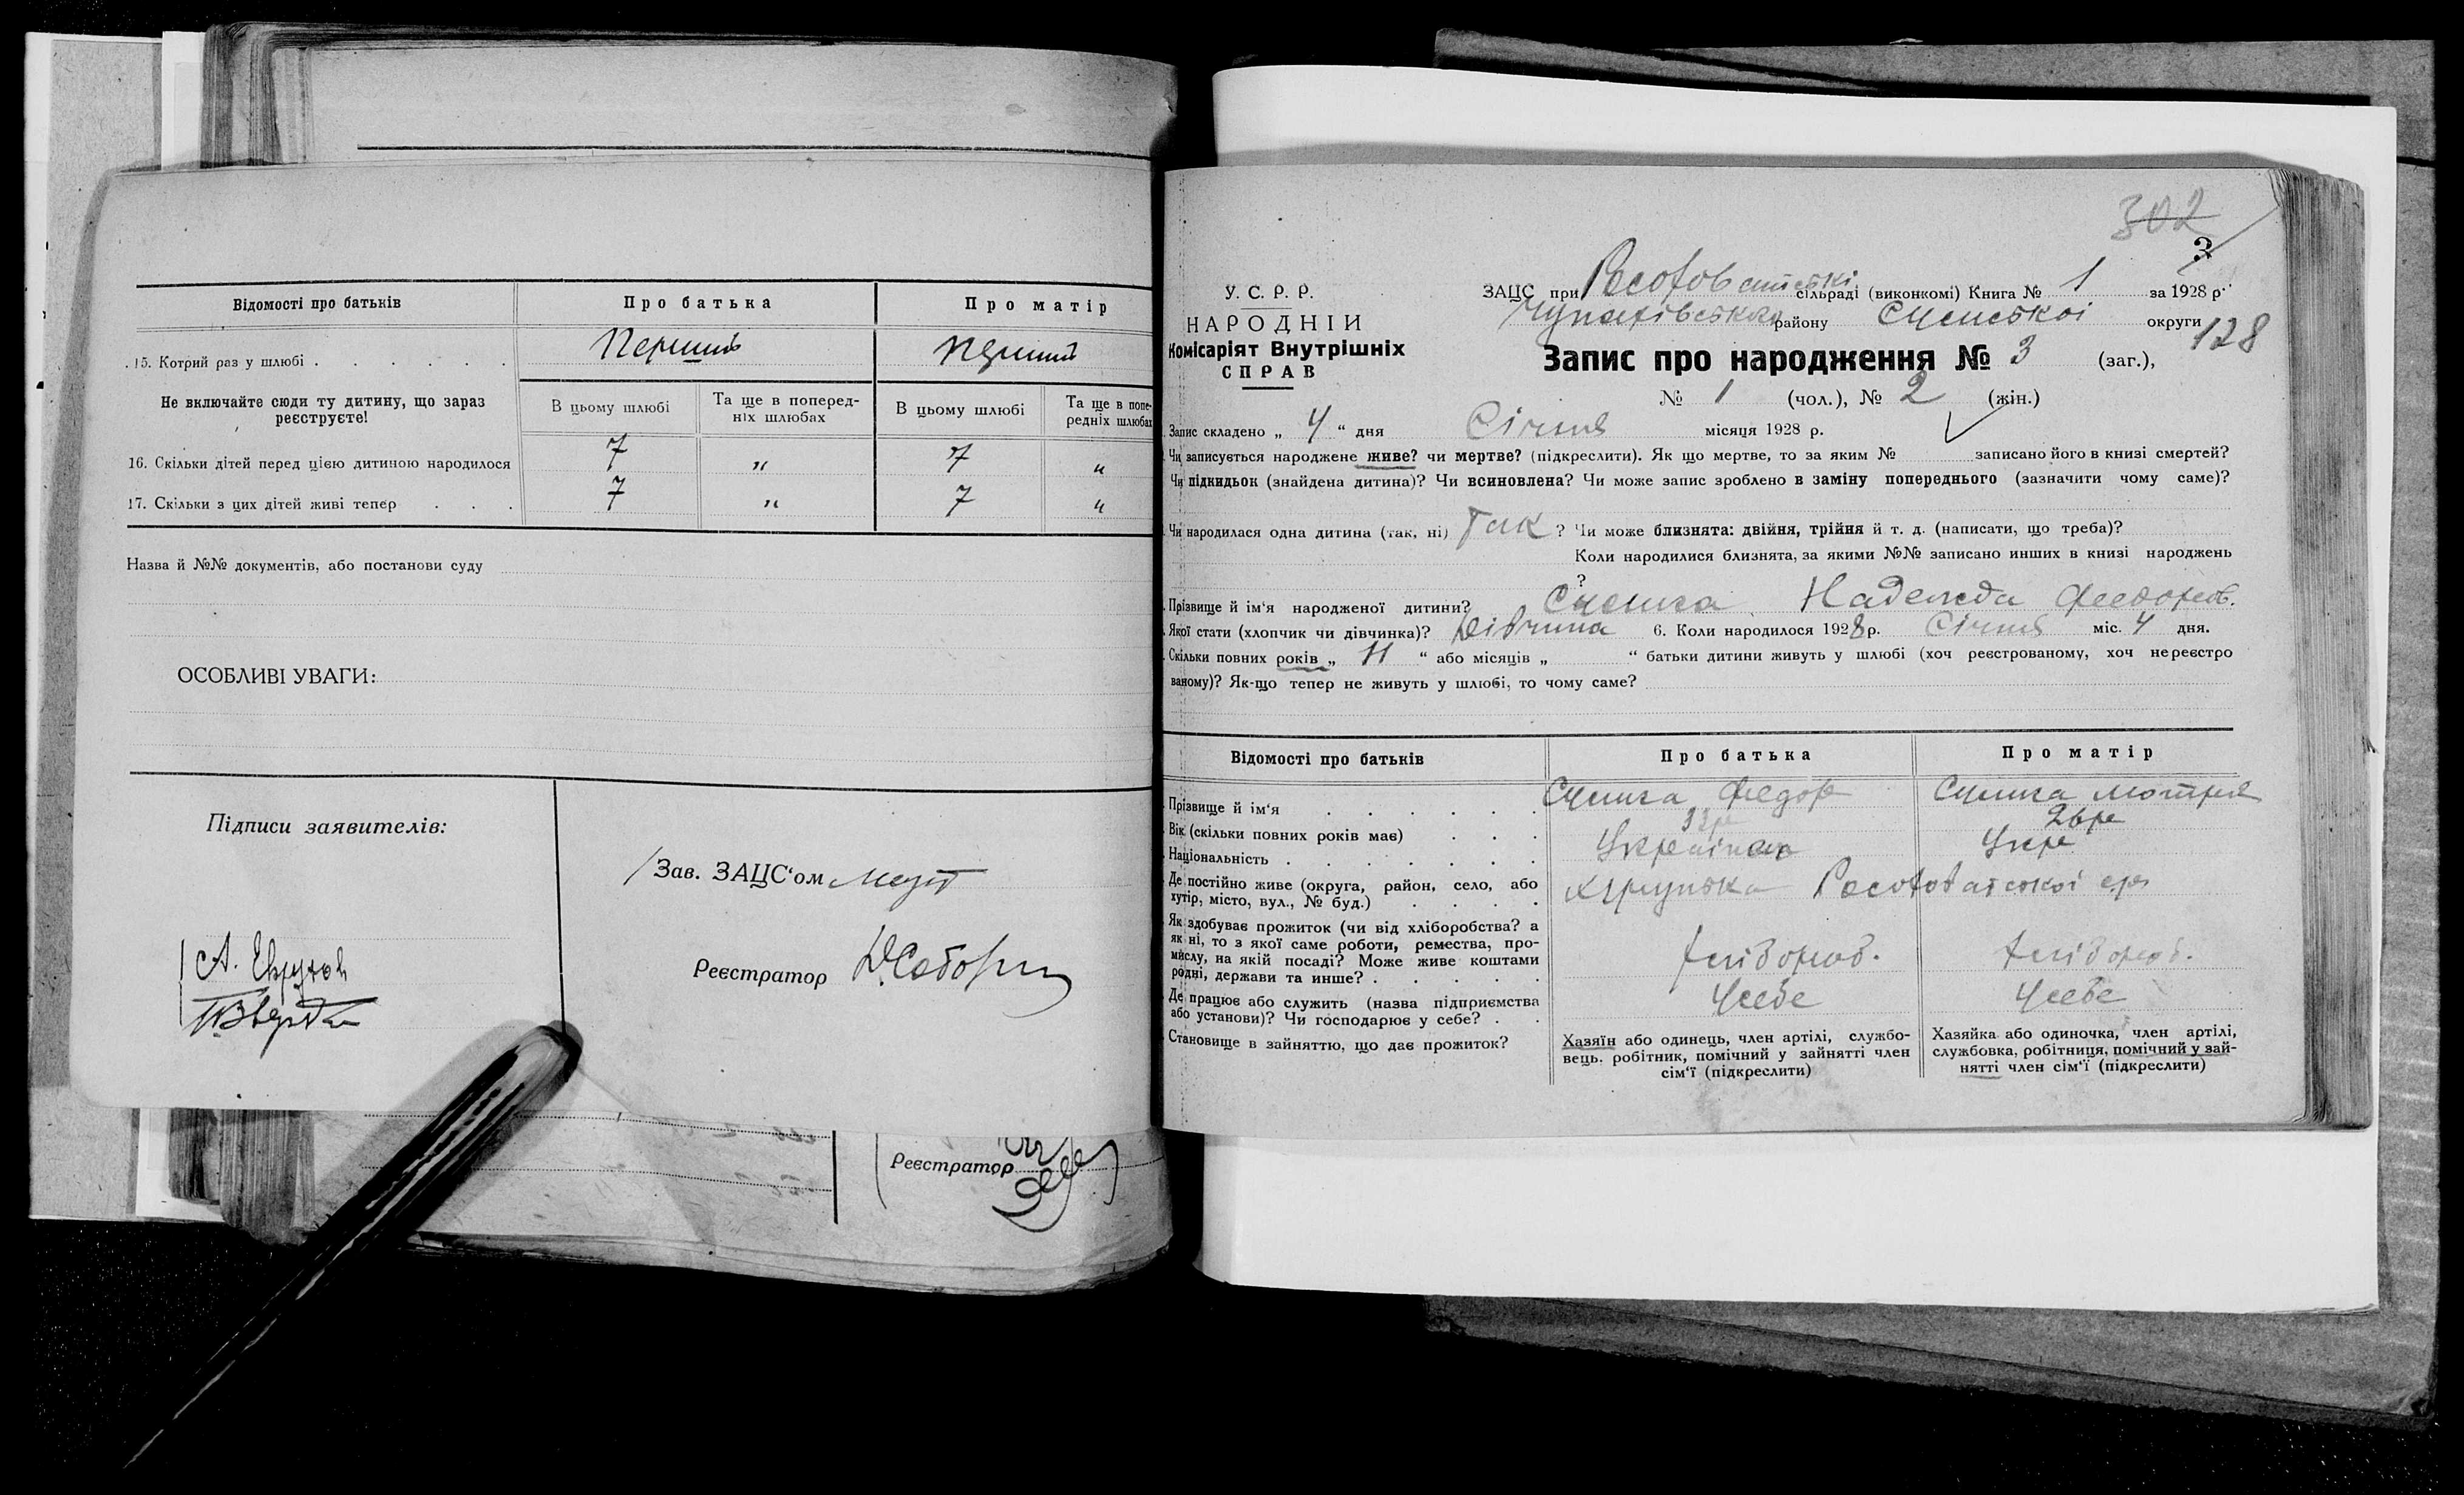 Відомості про батьків
Про батька
Про матір
15. Котрий раз у шлюбі
Перший
Перший
Не включайте сюди ту дитину, що зараз
реєструєте!
В цьому шлюбі
Та ще в поперед-
ніх шлюбах
В цьому шлюбі
Та ще в попе-
редніх шлюбах
16. Скільки дітей перед цією дитиною народилося
7
"
7
"
17. Скільки з цих дітей живі тепер
7
"
7
"
Назва й №№ документів, або постанови суду
ОСОБЛИВІ УВАГИ:
Підписи заявителів:
Зав. ЗАЦС'ом
Реєстратор
Реєстратор
302
3
У. С. Р. Р.
НАРОДНІЙ
Комісаріят Внутрішніх
СПРАВ
ЗАЦС при сільраді (виконкомі) Книга № 1 за 1928 р.
Чупахівського району Сумської округи
128
Запис про народження № 3 (заг.),
№ 1 (чол.), № 2 (жін.)
Запис складено „ 4 “ дня Січня місяця 1928 р.
Чи записується народжене живе? чи мертве? (підкреслити). Як що мертве, то за яким № записано його в книзі смертей?
Чи підкидьок (знайдена дитина)? Чи всиновлена? Чи може запис зроблено в заміну попереднього (зазначити чому саме)?
Чи народилася одна дитина (так, ні) Так ? Чи може близнята: двійня, трійня й т. д. (написати, що треба)?
Коли народилися близнята, за якими №№ записано инших в книзі народжень
?
Прізвище й ім'я народженої дитини? Надежда Федоров.
Якої стати (хлопчик чи дівчинка)? Дівчина 6. Коли народилося 1928 р. Січня міс. 4 дня.
Скільки повних років „ 11 “ або місяців „ “ батьки дитини живуть у шлюбі (хоч реєстрованому, хоч нереєстро
ваному)? Як-що тепер не живуть у шлюбі, то чому саме?
Відомості про батьків
Про батька
Про матір
Прізвище й ім'я
Федор
Мотря
Вік (скільки повних років має)
26 р
Національність
Українец
Укр
Де постійно живе (округа, район, село, або
хутір, місто, вул., № буд.)
Як здобуває прожиток (чи від хліборобства? а
як ні, то з якої саме роботи, ремества, про-
мислу, на якій посаді? Може живе коштами
родні, держави та инше?
хлібороб.
хлібороб.
Де працює або служить (назва підприємства
або установи)? Чи господарює у себе?
У себе
У себе
Становище в зайняттю, що дає прожиток?
Хазяїн або одинець, член артілі, службо-
вець. робітник, помічний у зайнятті член
сім'ї (підкреслити)
Хазяйка або одиночка, член артілі,
службовка, робітниця, помічний у зай-
нятті член сім'ї (підкреслити)